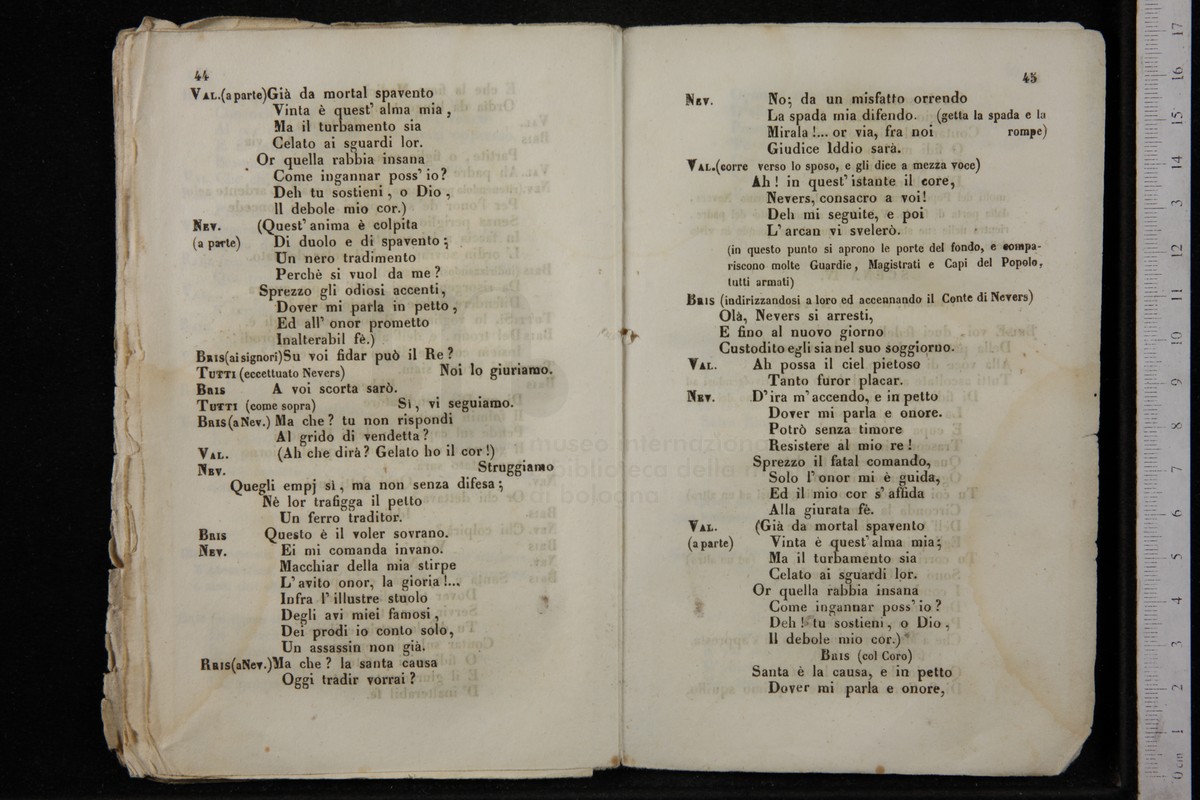 44
VAL.(a parte)Già da mortal spavento
Vinta è quest' alma mia,
Ma il turbamento sia
Celato ai sguardi lor.
Or quella rabbia insana
Come ingannar poss' io?
Deh tu sostieni, o Dio,
Il debole mio cor.)
NEV. (Quest' anima è colpita
(a parte) Di duolo e di spavento;
Un nero tradimento
Perchè si vuol da me?
Sprezzo gli odiosi accenti,
Dover mi parla in petto,
Ed all' onor prometto
Inalterabil fè.)
BRIS(ai signori)Su voi fidar può il Re?
TUTTI (eccettuato Nevers) Noi lo giuriamo.
BRIS A voi scorta sarò.
TUTTI (come sopra) Sì, vi seguiamo.
BRIS(a Nev.) Ma che? tu non rispondi
Al grido di vendetta?
VAL. (Ah che dirà? Gelato ho il cor!)
NEV. Struggiamo
Quegli empj sì, ma non senza difesa;
Nè lor trafigga il petto
Un ferro traditor.
BRIS Questo è il voler sovrano.
NEV. Ei mi comanda invano.
Macchiar della mia stirpe
L' avito onor, la gioria!...
Infra l' illustre stuolo
Degli avi miei famosi,
Dei prodi io conto solo,
Un assassin non già.
RRIS(aNev.)Ma che? la santa causa
Oggi tradir vorrai?
45
NEV. No; da un misfatto orrendo
La spada mia difendo. (getta la spada e la
Mirala!... or via, fra noi rompe)
Giudice Iddio sarà.
VAL.(corre verso lo sposo, e gli dice a mezza voce)
Ah! in quest' istante il core,
Nevers, consacro a voi!
Deh mi seguite, e poi
L' arcan vi svelerò.
(in questo punto si aprono le porte del fondo, e compa-
riscono molte Guardie, Magistrati e Capi del Popolo,
tutti armati)
BRIS (indirizzandosi a loro ed accennando il Conte di Nevers)
Olà, Nevers si arresti,
E fino al nuovo giorno
Custodito egli sia nel suo soggiorno.
VAL. Ah possa il ciel pietoso
Tanto furor placar.
NEV. D' ira m' accendo, e in petto
Dover mi parla e onore.
Potrò senza timore
Resistere al mio re!
Sprezzo il fatal comando,
Solo l' onor mi è guida,
Ed il mio cor s' affida
Alla giurata fè.
VAL. (Già da mortal spavento
(a parte) Vinta è quest' alma mia;
Ma il turbamento sia
Celato ai sguardi lor.
Or quella rabbia insana
Come ingannar poss' io?
Deh! tu sostieni, o Dio,
Il debole mio cor.)
BRIS (col Coro)
Santa è la causa, e in petto
Dover mi parla e onore,
museo internazionale
biblioteca della
di bologna
0cm 1 2 3 4 5 6 7 8 9 10 11 12 13 14 15 16 17